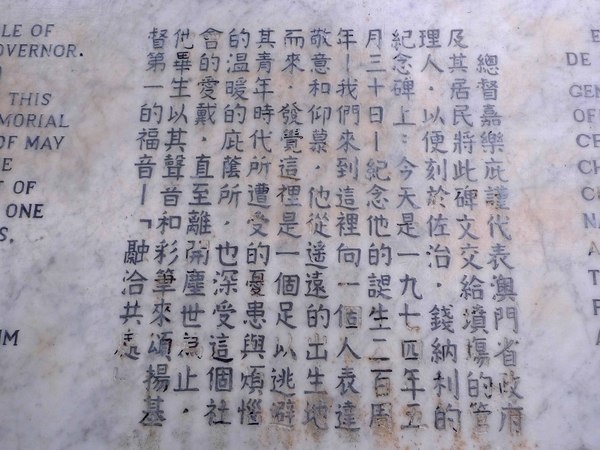 LE OF
OVERNOR.
THIS
MORIAL
OF MAY
E
T OF
ONE
S.
UM
總督嘉樂庇謹代表澳門省政府
及其居民將此碑文交給墳塲的管
理人，以便刻於佐治．錢納利的
紀念碑上：今天是一九七四年五
月三十日—紀念他的誤生二百周
年—我們來到這裡向一個人表達
敬意和仰慕，他從遙遠的出生地
而來，發覺這裡是一個足以逃避
其青年時代所遭受的憂患與煩惱
的溫暖的庇蔭所，也深受這個社
會的愛戴，直至離開塵世為止，
他畢生以其聲音和彩筆來頌揚基
督第一的福音—「融洽共處
DE
GEN
OF
CE
CH
NA